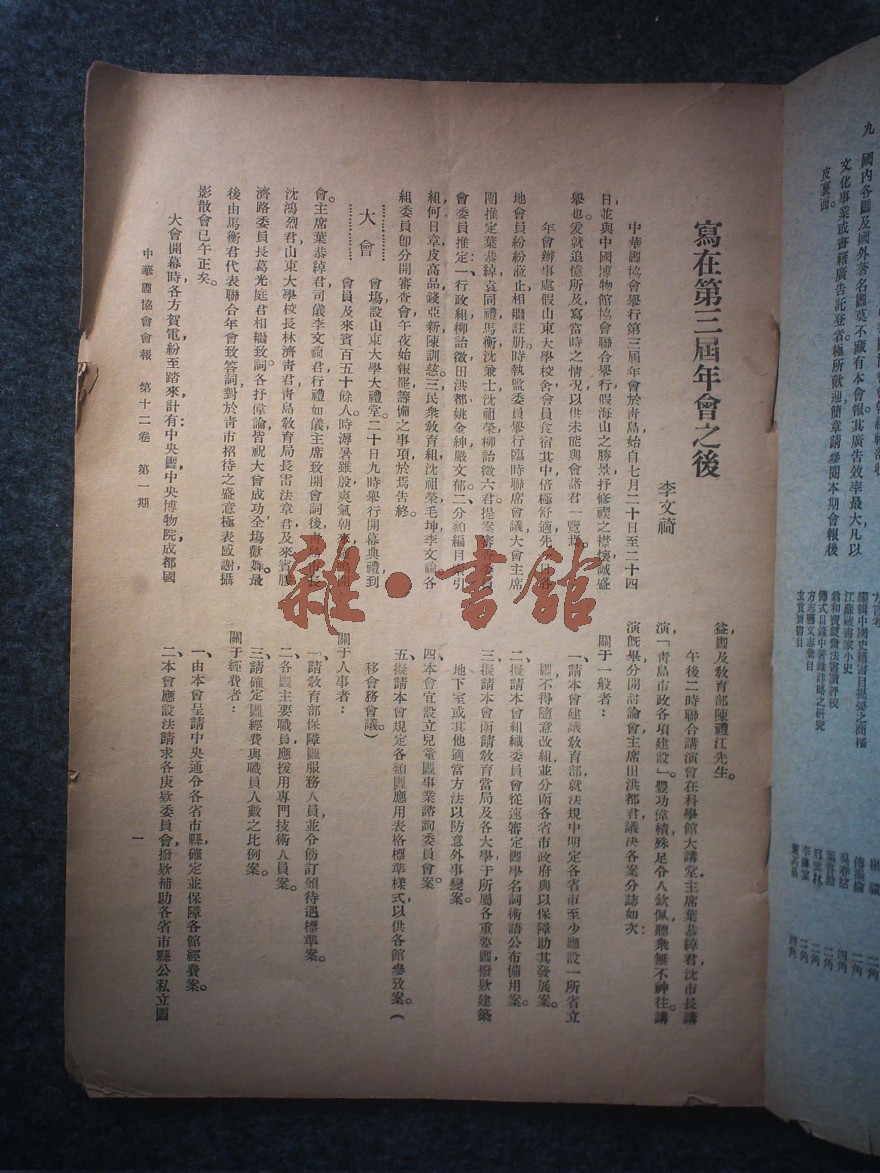 寫在第三屆年會之後
李文䄎
中華圕協會舉行第三屆年會於青島始自七月二十日至二十四
日並與中國博物館協會聯合舉行假海山之勝景抒修禊之襟懷誠盛
舉也爰就追憶所及寫當時之情况以供未能與會諸君一覽
年會辦事處假山東大學校舍會員食宿其中倍極舒適先
地會員紛紛蒞止相繼註册時執監委員舉行臨時聯席會議大會主席
團推定葉恭綽袁同禮馬衡沈兼士沈祖榮柳詒徵六君提案審
會委員推定一行政組柳詒徵田洪都姚金紳嚴文郁二分類編目索引
組何日章皮高品錢亞新陳訓慈三民衆教育組沈祖榮毛坤李文䄎各
組委員卽分開審查會午夜始報罷籌備之事項於焉告終。
大會
會塲設山東大學大禮堂二十日九時舉行開幕典禮到
會員及來賓百五十餘人時溽暑雖殷爽氣朝來
會。主席葉恭綽君司儀李文䄎君行禮如儀主席致開會詞後青島市長
沈鴻烈君山東大學校長林濟青君青島教育局長雷法章君及來賓膠
濟路委員長葛光庭君相繼致詞各抒偉論皆祝大會成功全塲歡舞最
後由馬衡君代表聯合年會致答詞對於青市招待之盛意極表感謝攝
影散會已午正矣。
大會開幕時各方賀電紛至踏來計有：中央圕，中央博物院成都國
益圕及敎育部陳禮江先生。
午後二時聯合講演會在科學館大講堂，主席葉恭綽君沈市長講
演「青島市政各項建設」。豐功偉績殊足令人欽佩聽衆無不神往。講
演旣畢分開討論會主席田洪都君議决各案分誌如次：
關于一般者：
一請本會建議敎育部就法規中明定各省市至少應設一所省立
圕不得隨意改組並分函各省市政府與以保障助其發展案。
二擬請本會組織委員會從速審定圕學名詞術語公布備用案。
三擬請本會函請敎育當局及各大學于所屬各重要圕撥欵建築
地下室或其他適當方法以防意外事變案。
四本會宜設立兒童圕事業諮詢委員會案。
五擬請本會規定各類圕應用表格標準樣式以供各館參攷案。（
移會務會議。）
關于人事者：
一請敎育部保障圕服務人員並令飭訂頒待遇標準案。
二各圕主要職員應援用專門技術人員案。
三請確定圕經費與職員人數之比例案。
關于經費者：
一由本會呈請中央通令各省市縣確定並保障各館經費案。
二本會應設法請求各庚欵委員會撥欵補助各省市縣公私立圕
中華圕協會會報 第十二卷 第一期
一
九
國內各圕及國外著名圕莫不藏有本會報其廣告效率最大凡以
文化事業或書籍廣告託登者極所歡迎簡章請參閱本期會報後
皮裏面。
江蘇藏書家小史
雜·書館